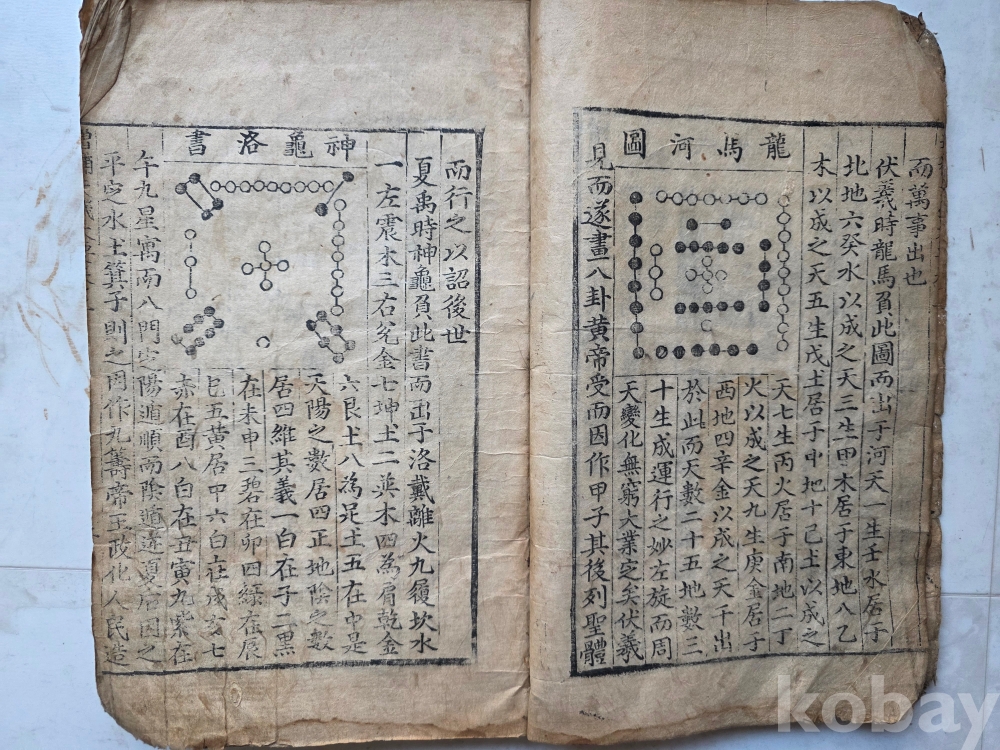 而萬事出也
伏羲時龍馬負此圖而出于河天一生壬水居于
北地六癸水以成之天三生甲木居于東地八乙
木以成之天五生戊土居于中地十己土以成之
龍馬河圖
天七生丙火居于南地二丁
火以成之天九生庚金居于
西地四辛金以成之天干出
於此而天數二十五地數三
十生成運行之妙左旋而周
天變化無窮大業定矣伏羲
見而遂畫八卦黃帝受而因作甲子其後列聖體
而行之以詔後世
夏禹時神龜負此書而出于洛戴離火九履坎水
一左震木三右兌金七坤土二巽木四為肩乾金
神龜洛書
六艮土八為足土五在中是
天陽之數居四正地陰之數
居四維其義一白在子二黑
在未申三碧在卯四綠在辰
巳五黃居中六白在戌亥七
赤在酉八白在丑寅九紫在
午九星寓而八門定陽遁順而陰遁逆夏后因之
平定水土箕子則之因作九籌帝王政化人民造
kobay